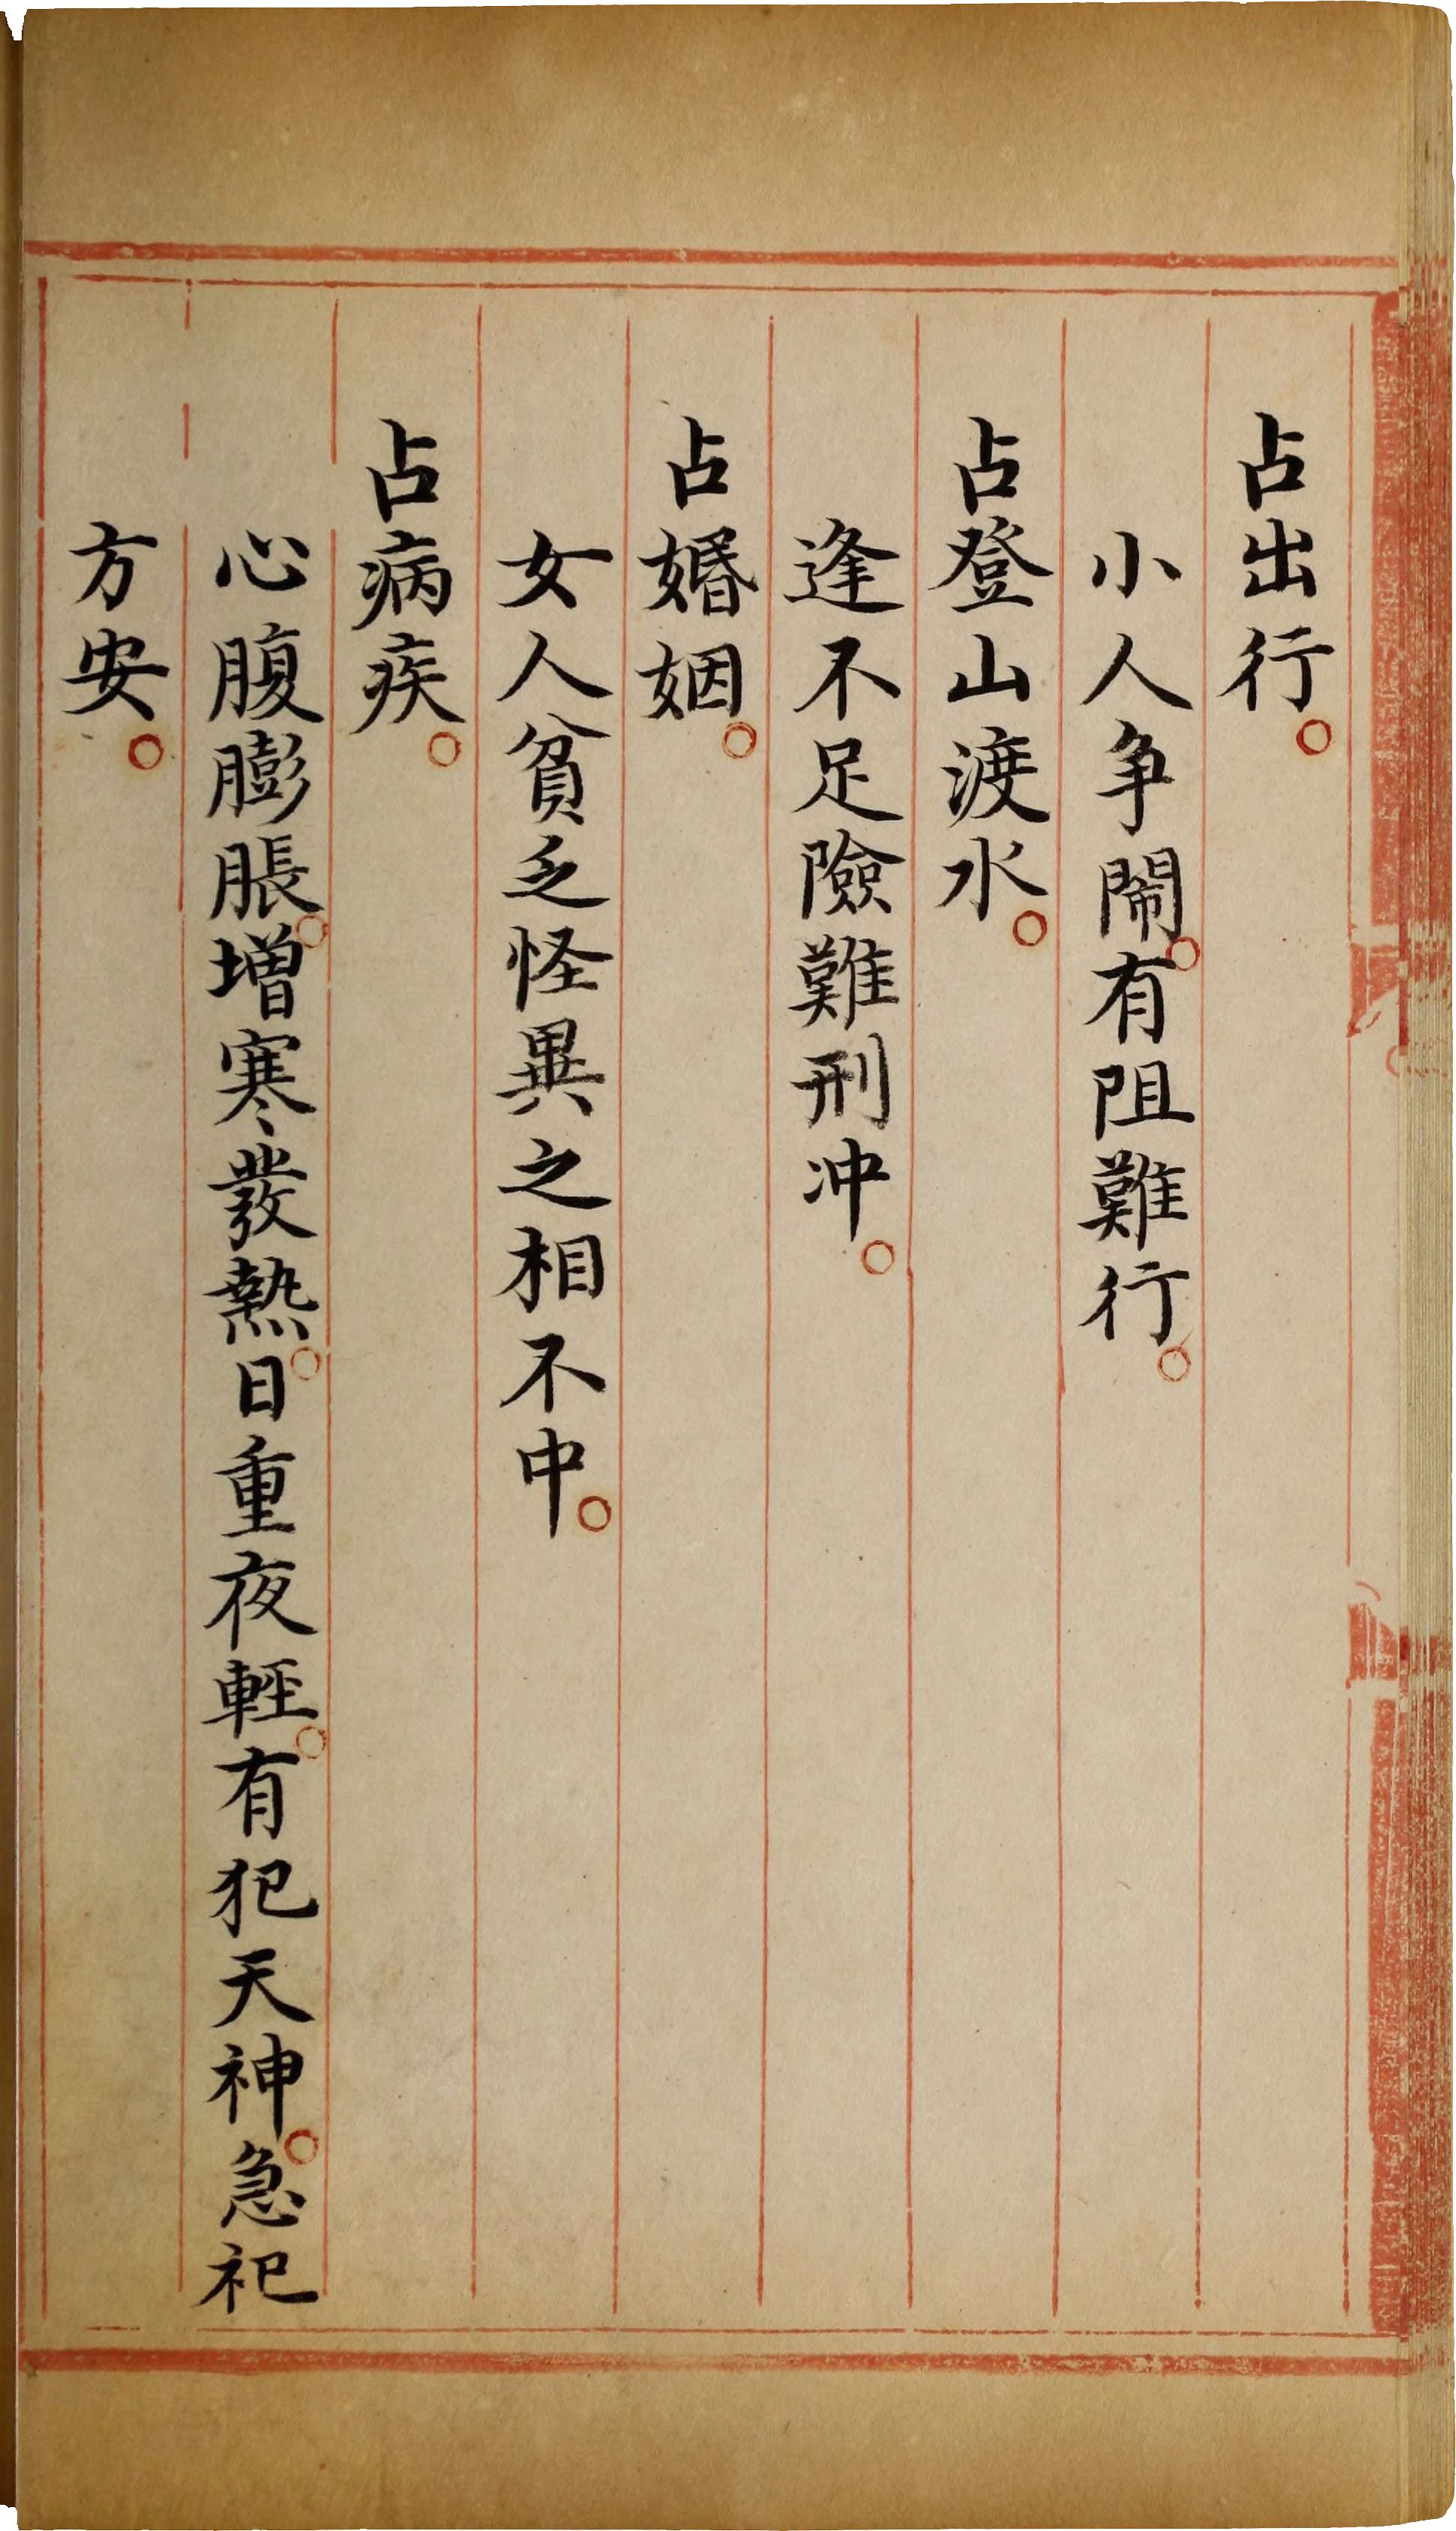 占出行。
小人争鬧。有阻難行。
占登山渡水。
逢不足險難刑冲。
占婚姻。
女人貧乏怪異之相不中。
占病疾。
心腹膨脹。增寒發熱。日重夜輕。有犯天神。急祀
方安。